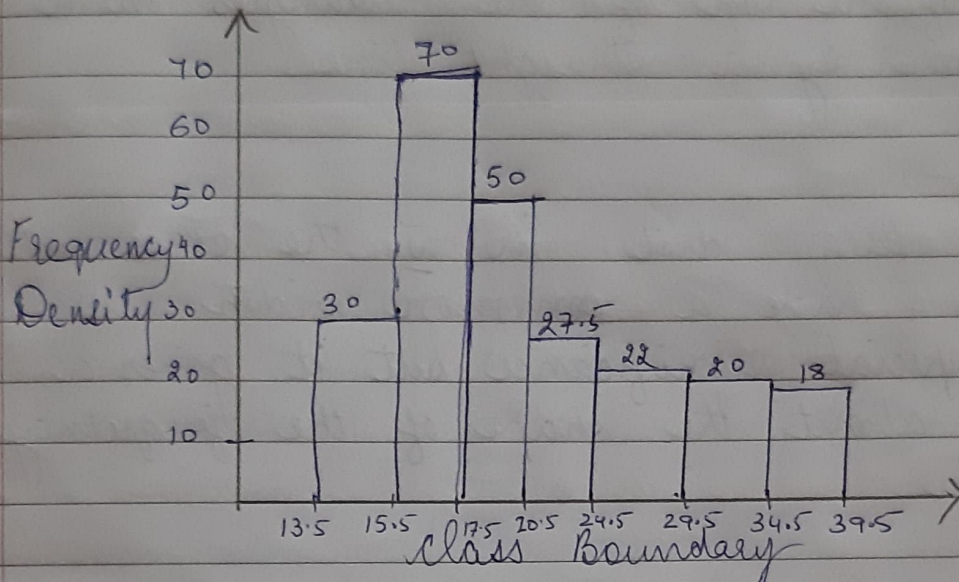 70
70
60
50
50
Frequency 40
Density 30
30
27.5
22
20
18
20
10
13.5 15.5 17.5 20.5 24.5 29.5 34.5 39.5
Class Boundary